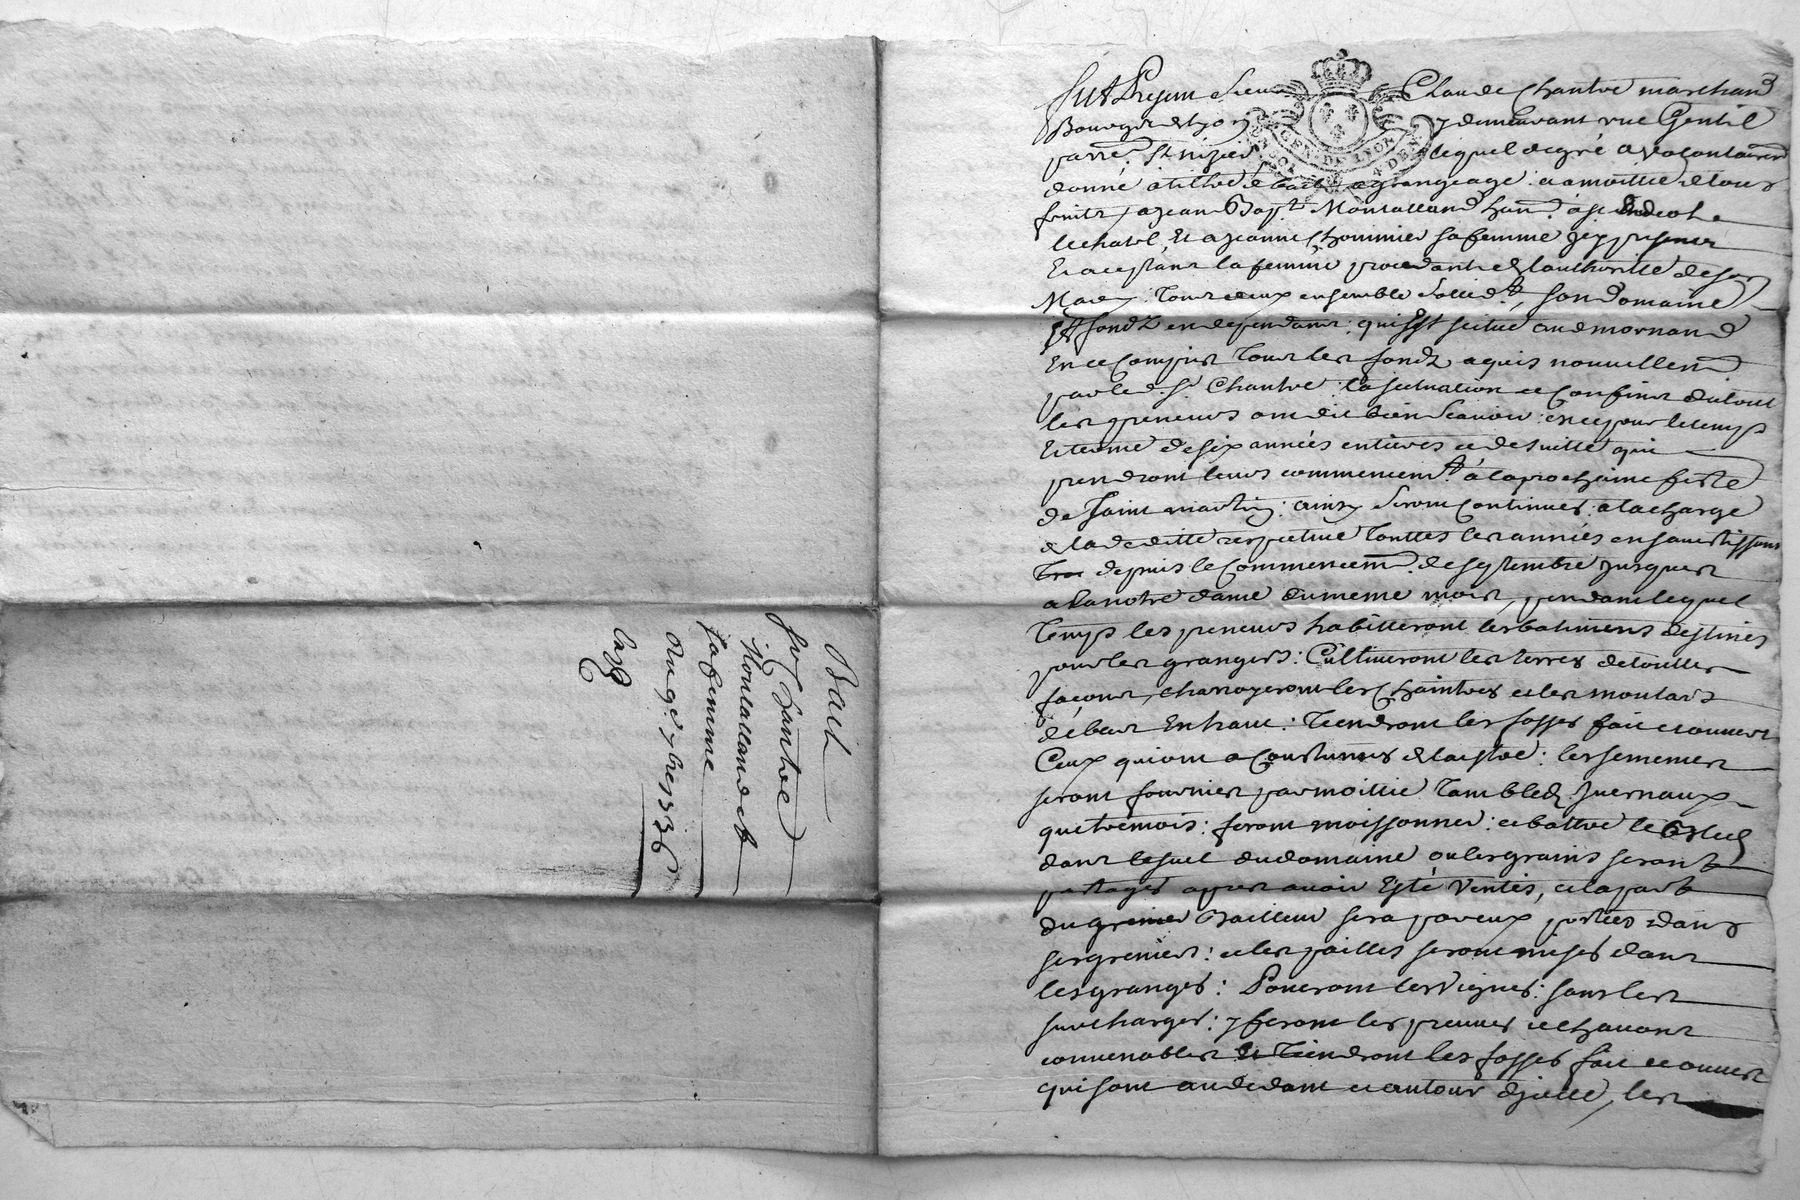 Bail
Sr Chantre
Montalland et
sa femme
Du 9e 7bre 1736
Fut Present Sieur Claude Chantre marchand
Bourgeois de Lyon y demeurant rue Gentil
parre. St nizier lequel de gré a volontairemt
donné a tiltre de bail a grangeage: a moittie de tous
fruits, a Jean Bapt. Montalland de St Andeol
le chatel, Et a Jeanne Chommier sa femme Icy presents
Et aceptans la femme procedante de l'authoritte de son
Mary: tous deux ensemble solidt, son Domaine
Et fondz en dependans: qui Est scitué au d mornand
En ce Compris tous les fondz aquis nouvellemt
par led. Sr Chantre: la scituation et Confins du tout
les preneurs ont dit bien scavoir: et ce pour le temps
Et terme de six années entieres et de suitte qui
prendront leurs commencemt. a la prochaine feste
de Saint martin: ainsy seront Continues: a la charge
de la deditte respective touttes les années en savertissant
depuis le Commencemt. de septembre Jusques
a la notre dame du meme mois, pendant lequel
Temps les preneurs habitteront les batiments destinés
pour les grangers: Cultiveront les terres de touttes
façons, charroyeront les Chaintres et les montars
de bas En haut: Tiendront les fosses fait et ouvert
Ceux qui ont acoustumés de l'estre: les semences
seront fournies par moittie tant bleds Ivernaux
que tremois: feront moissonner: et battre le Bled
dans le suel du domaine ou les grains seront
partages apres avoir Esté Ventés, et la part
du Bailleur sera par eux portées dans
ses greniers: et les pailles seront mises dans
les granges: Poueront les Vignes: sans les
surcharger: y feront les preuves et chavons
convenables Et Tiendront les fosses fait et ouvert
qui sont au dedans et autour d'icelle, les